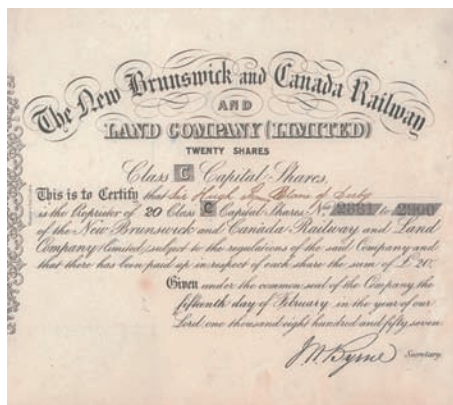 The New Brunswick and Canada Railway
AND
LAND COMPANY (LIMITED)
TWENTY SHARES
Class C Capital Shares,
This is to Certify that Sir Hugh of
is the Proprietor of 20 Class C Capital Shares No 2881 to 2900
of the New Brunswick and Canada Railway and Land
Company Limited, subject to the regulations of the said Company and
that there has been paid up in respect of each share the sum of £20.
Given under the common seal of the Company the
fifteenth day of February in the year of our
Lord one thousand eight hundred and fifty seven
Secretary